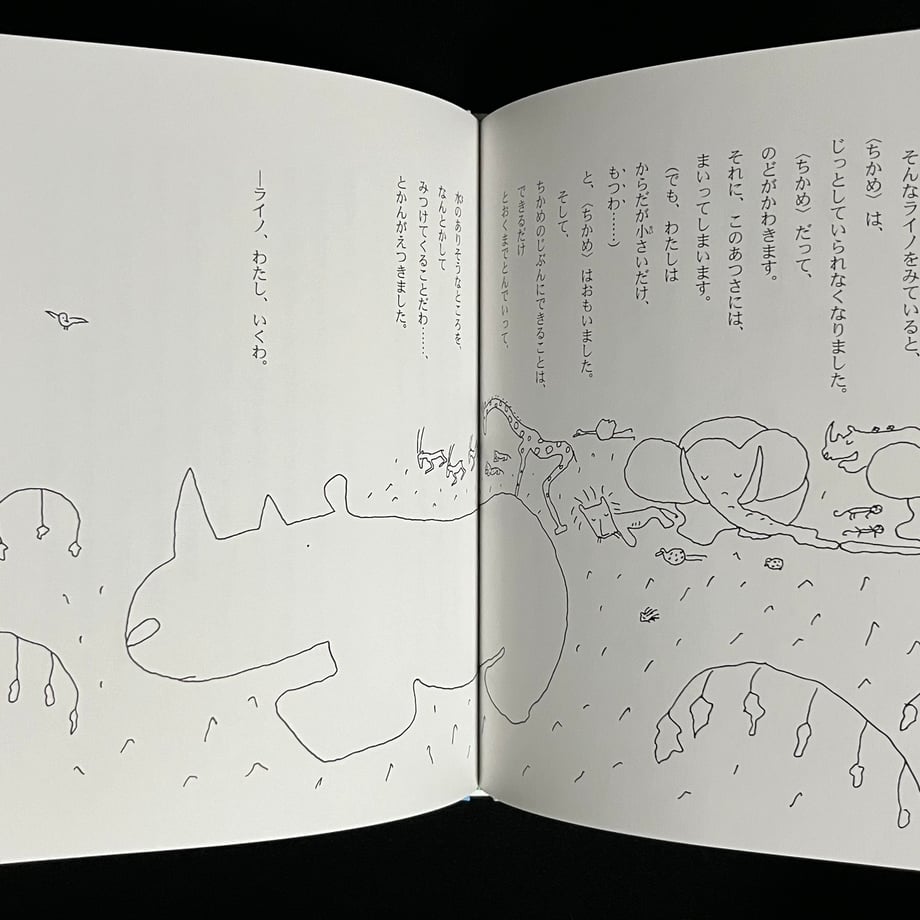 そんなライノをみていると、
〈ちかめ〉は、
じっとしていられなくなりました。
〈ちかめ〉だって、
のどがかわきます。
それに、このあつさには、
まいってしまいます。
（でも、わたしは
からだが小さいだけ、
もつわ……）
と、〈ちかめ〉はおもいました。
そして、
ちかめのじぶんにできることは、
できるだけ
とおくまでとんでいって、
水のありそうなところを、
なんとかして
みつけてくることだわ……、
とかんがえつきました。
―ライノ、わたし、いくわ。